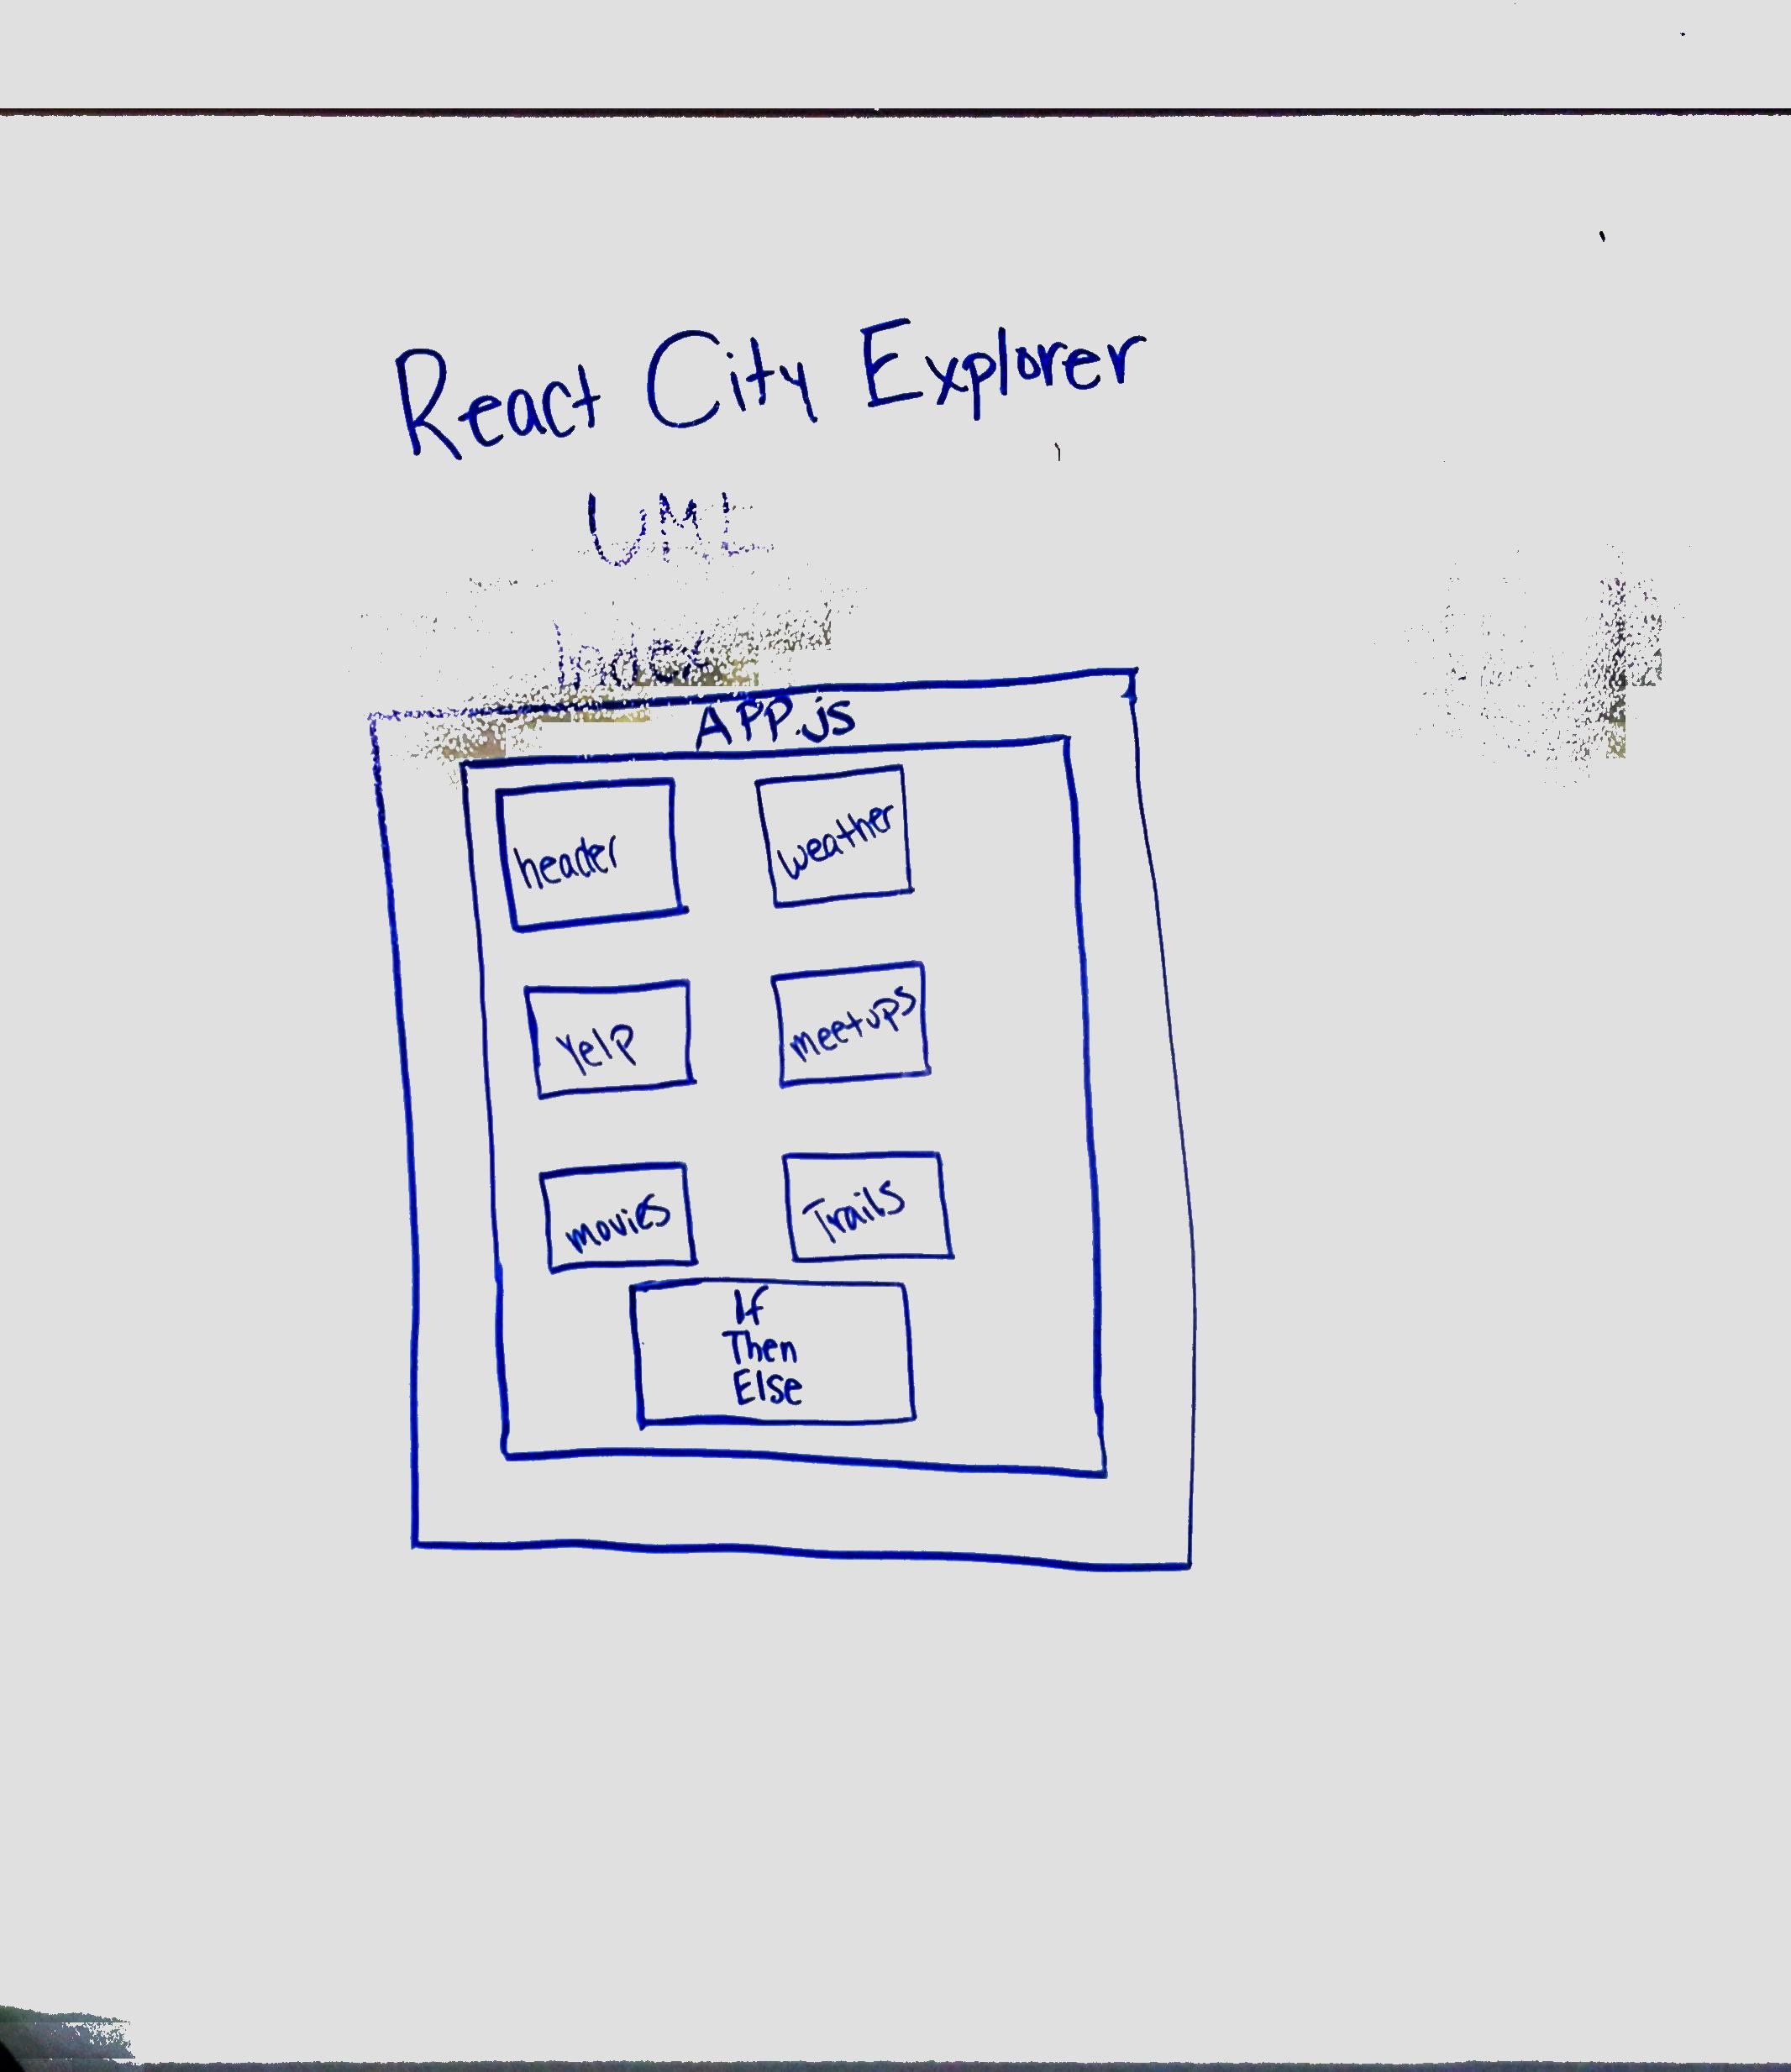 React City Explorer
UML
Index
APP.js
header
weather
Yelp
meetups
movies
Trails
If
Then
Else